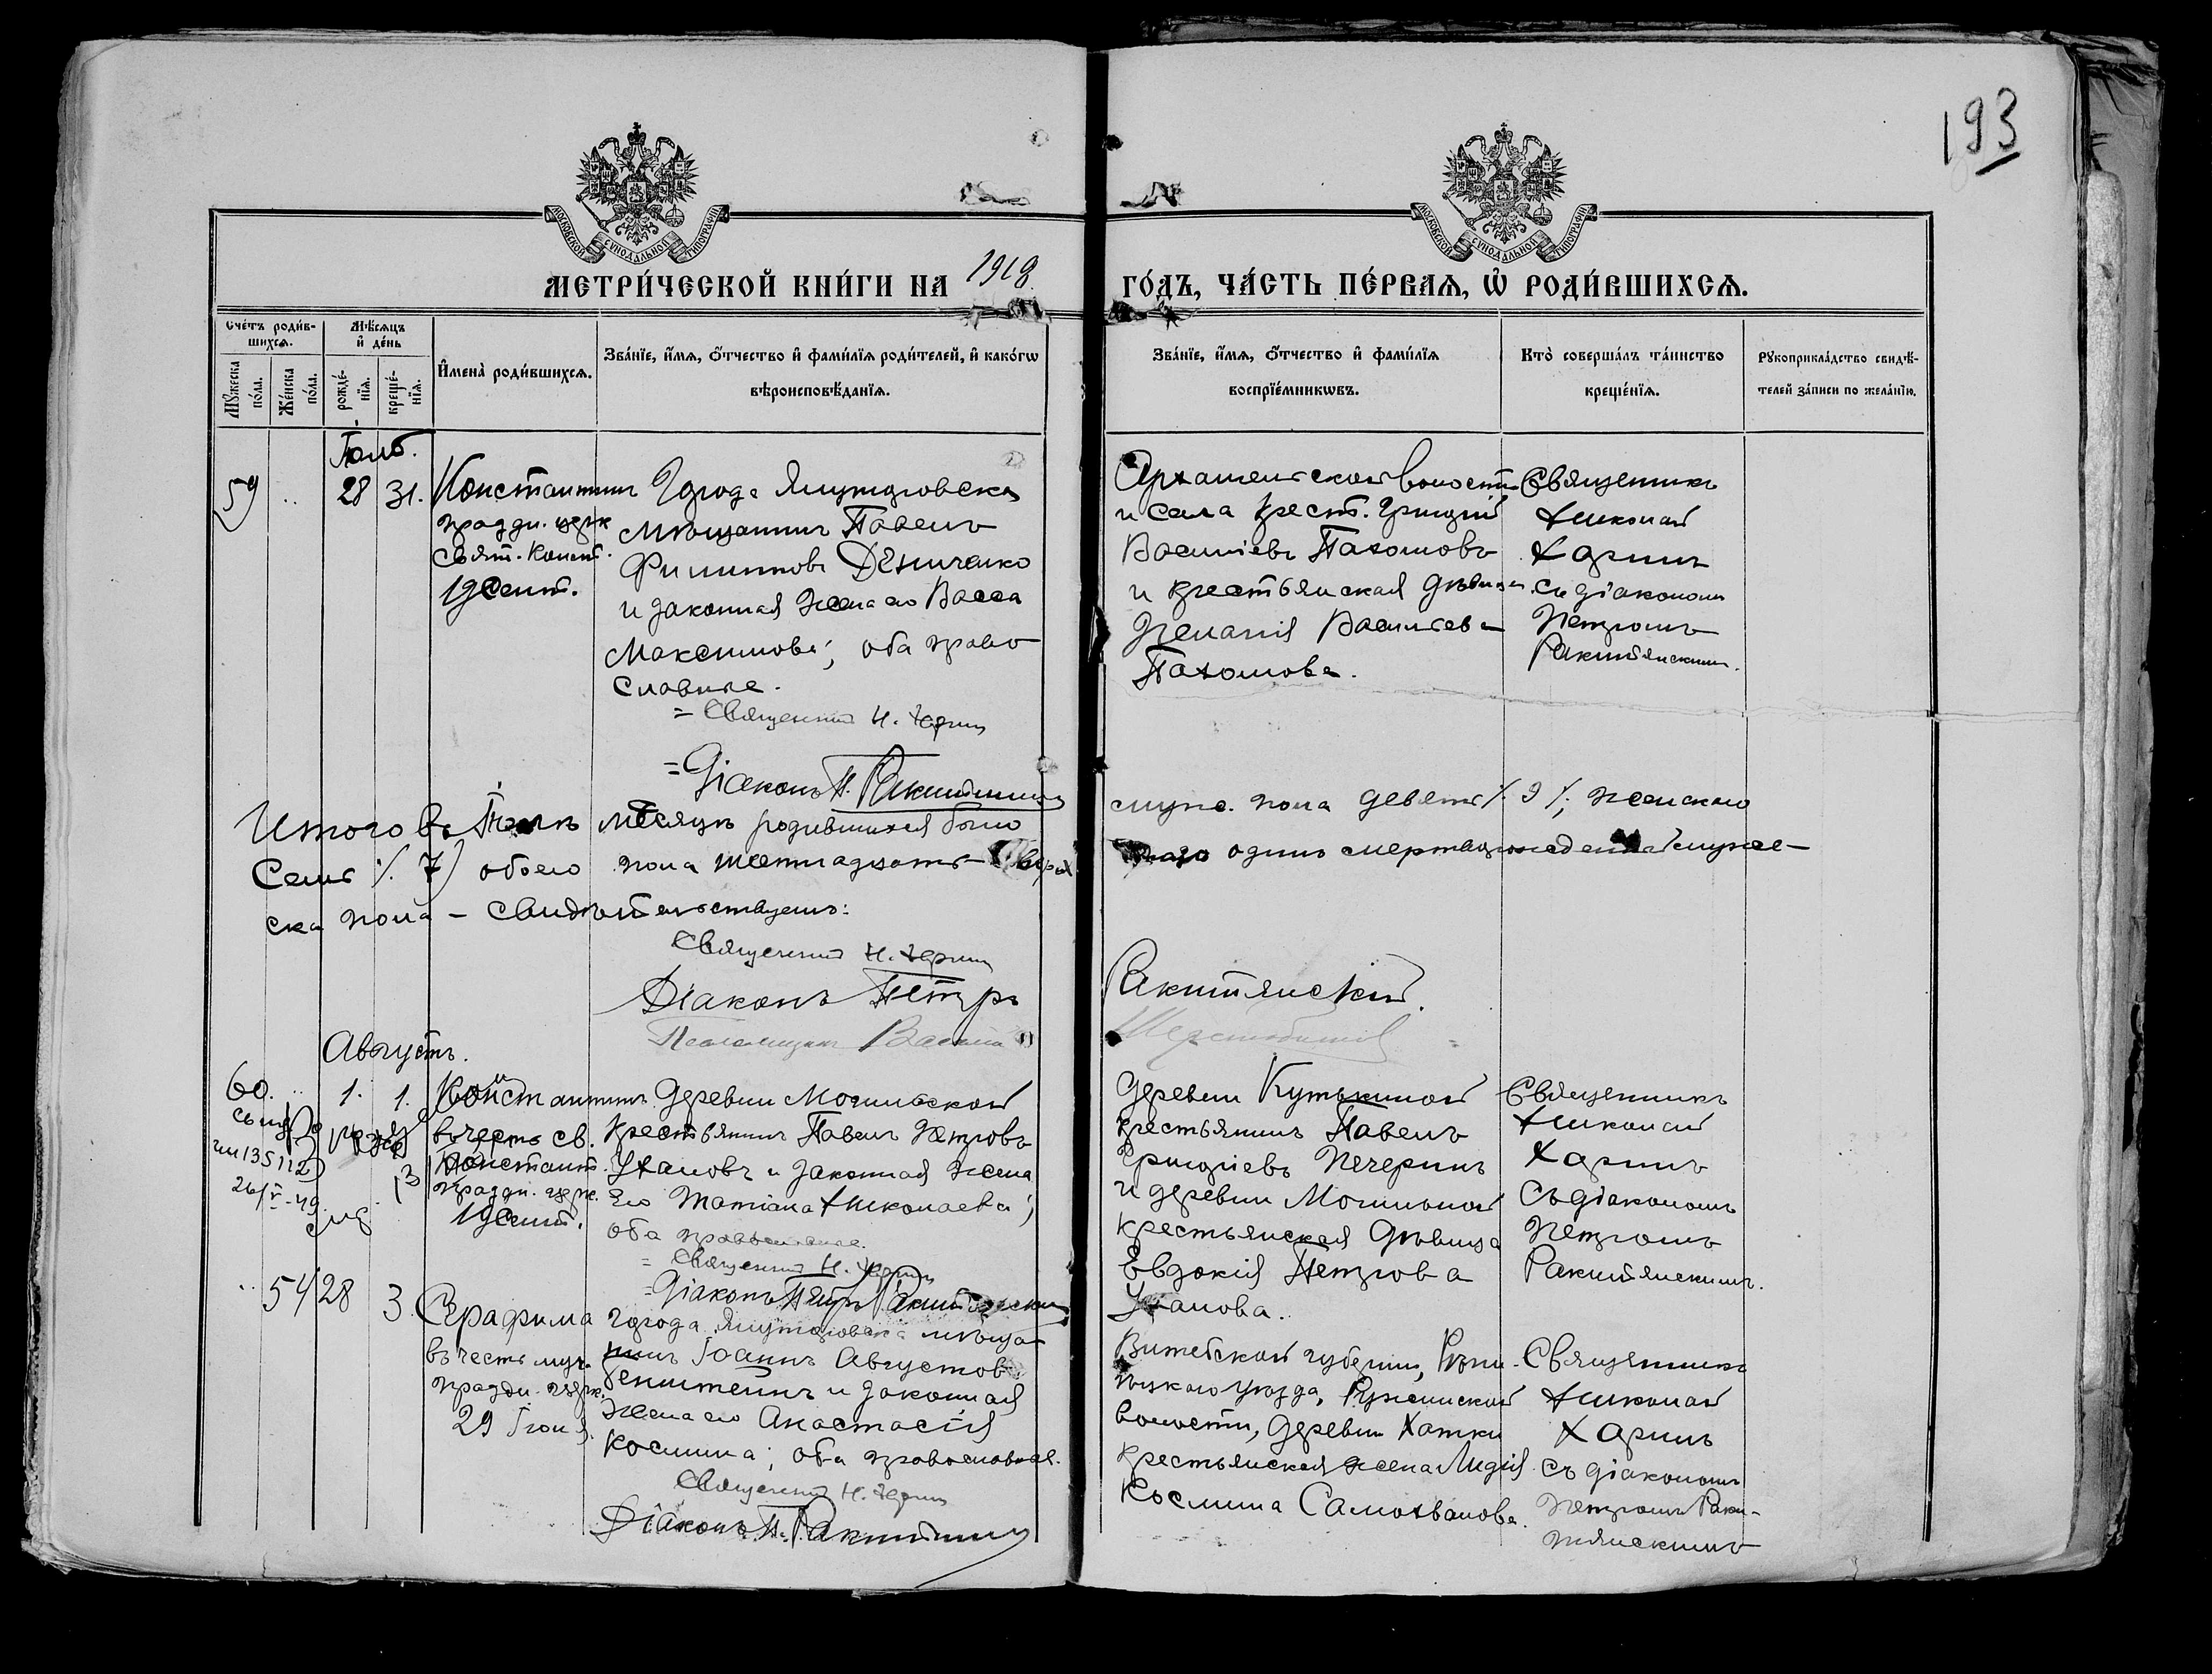 193
МОСКОВСКОЙ СУНОДАЛЬНОЙ ТИПОГРАФІИ
МОСКОВСКОЙ СУНОДАЛЬНОЙ ТИПОГРАФІИ
МЕТРИ́ЧЕСКОЙ КНИ́ГИ НА 1918 ГО́ДЪ, ЧА́СТЬ ПЕ́РВАЯ, Ѡ҆ РОДИ́ВШИХСЯ.
Сче́тъ роди́в-
шихся.
Мѣ́сяцъ
и҆ де́нь
Мꙋ́жеска по́ла.
Же́нска по́ла.
рожде́-
нїя.
креще́-
нїя.
И҆мена̀ роди́вшихся.
Зва́нїе, и҆́мя, ѻ҆́тчество и҆ фами́лїя роди́телей, и҆ како́гѡ
вѣроисповѣ́данїя.
Зва́нїе, и҆́мя, ѻ҆́тчество и҆ фами́лїя
воспрїе́мникѡвъ.
Кто̀ соверша́лъ та́инство
креще́нїя.
Рꙋкоприкла́дство свидѣ́-
телей за́писи по жела́нїю.
59 28 31.
Константинъ
праздн. церк
Свят. Конст.
19 Сент.
Города Ялуторовска
мѣщанинъ Павелъ
Филипповъ
и законная жена его Васса
Максимова; оба право
славные.
= Священникъ Н. Харинъ
= Діаконъ П. Ракитянскій
волости
и села крест. Григорій
Василіевъ Пахомовъ
и крестьянская дѣвица
Пелагія Васильева
Пахомова.
Священникъ
Николай
Харинъ
съ діакономъ
Петромъ
Ракитянскимъ.
Итого въ мѣсяцѣ родившихся было муж. пола девять /. 9 /; женскаго
Семь /. 7) обоего пола шестнадцать одинъ мертворожденный муже-
ска пола – свидѣтельствуемъ:
Священникъ Н. Харинъ
Діаконъ Петръ Ракитянскій.
Псаломщикъ
Августъ.
60. 1. 1.
135112
26/V-49
Константинъ
въ честь св.
Констант.
праздн. церк.
19 Сент.
Деревни
крестьянинъ Павелъ Петровъ
Ухановъ и законная жена
его Татіана Николаева;
оба православные.
= Священникъ Н. Харинъ
= Діаконъ Петръ Ракитянскій
деревни
крестьянинъ Павелъ
Григорьевъ Печеринъ
и деревни
крестьянская дѣвица
Евдокія Петрова
Уханова.
Священникъ
Николай
Харинъ
Съ діакономъ
Петромъ
Ракитянскимъ.
54 28 3.
Серафима
въ честь муч.
праздн. церк.
29 Іюля
Города Ялуторовска мѣща-
нинъ Іоаннъ Августовъ
и законная
жена его Анастасія
Космина; оба православные.
Священникъ Н. Харинъ
Діаконъ П. Ракитянскій
Витебской губерніи,
уѣзда,
волости, деревни
крестьянская жена Лидія
Космина Самохвалова.
Священникъ
Николай
Харинъ
съ діакономъ
Петромъ Раки-
тянскимъ